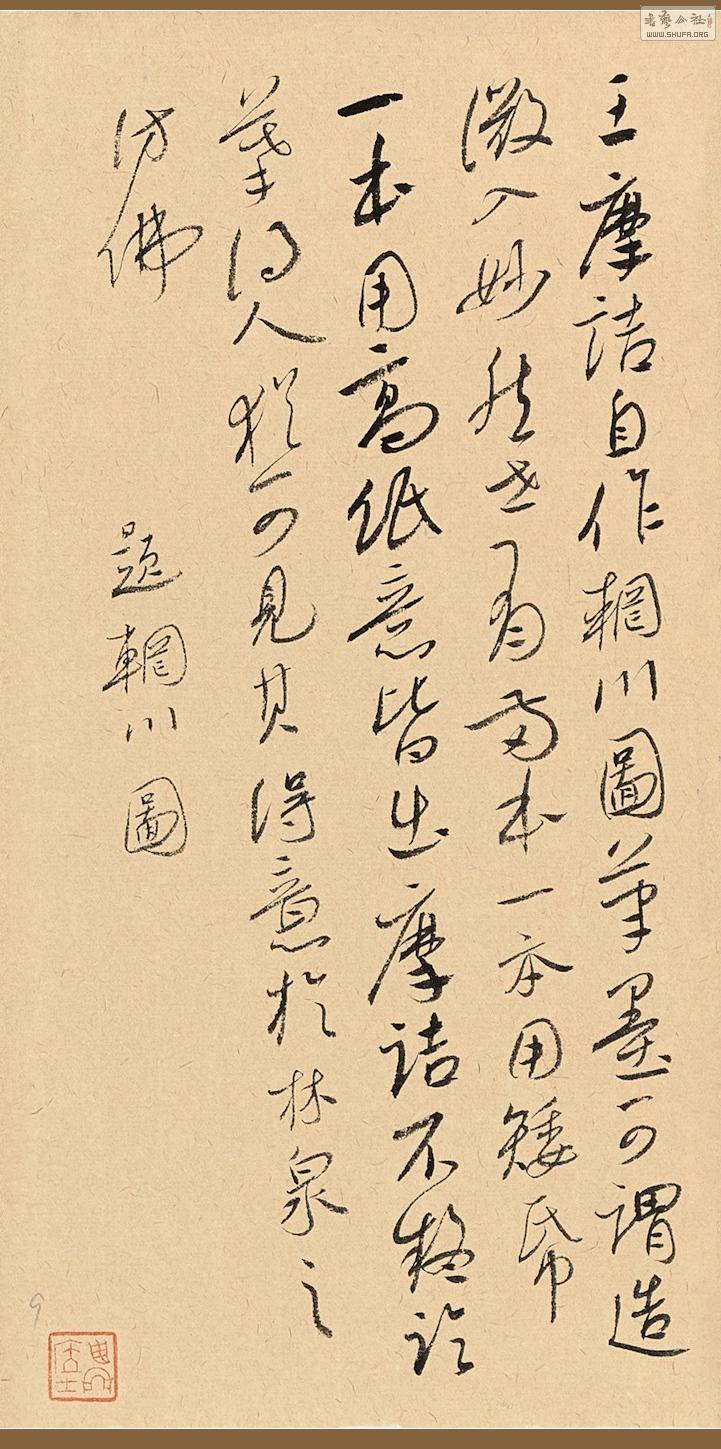 王摩詰自作輞川圖筆墨可謂造
微入妙然世有兩本一本用矮帋
一本用高紙意皆出摩詰不疑臨
摹得人猶可見其得意於林泉之
仿佛
題輞川圖
9
書藝公社
WWW.SHUFA.ORG